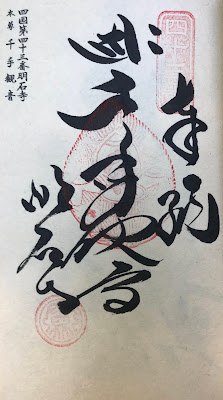 奉納
千手観音
明石寺
四国第四十三番明石寺
本尊千手観音